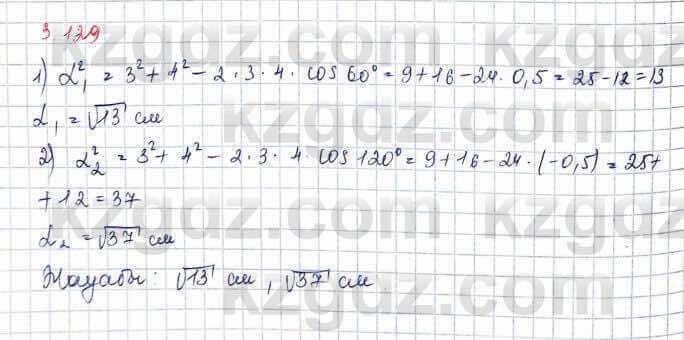 3 139
1) d₁² = 3² + 4² - 2 · 3 · 4 · cos 60° = 9 + 16 - 24 · 0,5 = 25 - 12 = 13
d₁ = √13 см
2) d₂² = 3² + 4² - 2 · 3 · 4 · cos 120° = 9 + 16 - 24 · (-0,5) = 25 +
+ 12 = 37
d₂ = √37 см
Жауабы: √13 см, √37 см.
kzgdz.com
kzgdz.com
kzgdz.com
kzgdz.com